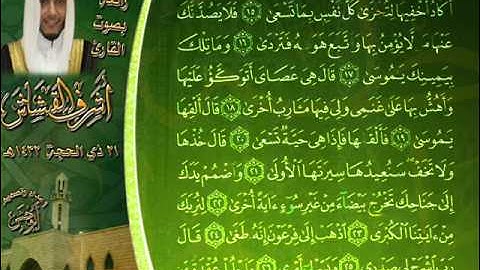 بصوت
القارئ
أشرف القشاش
٢١ ذي الحجة ١٤٣٢هـ
أَكَادُ أُخْفِيهَا لِتُجْزَىٰ كُلُّ نَفْسٍۭ بِمَا تَسْعَىٰ ١٥ فَلَا يَصُدَّنَّكَ
عَنْهَا مَن لَّا يُؤْمِنُ بِهَا وَٱتَّبَعَ هَوَىٰهُ فَتَرْدَىٰ ١٦ وَمَا تِلْكَ
بِيَمِينِكَ يَٰمُوسَىٰ ١٧ قَالَ هِيَ عَصَايَ أَتَوَكَّؤُا۟ عَلَيْهَا
وَأَهُشُّ بِهَا عَلَىٰ غَنَمِي وَلِيَ فِيهَا مَـَٔارِبُ أُخْرَىٰ ١٨ قَالَ أَلْقِهَا
يَٰمُوسَىٰ ١٩ فَأَلْقَىٰهَا فَإِذَا هِيَ حَيَّةٌ تَسْعَىٰ ٢٠ قَالَ خُذْهَا
وَلَا تَخَفْ سَنُعِيدُهَا سِيرَتَهَا ٱلْأُولَىٰ ٢١ وَٱضْمُمْ يَدَكَ
إِلَىٰ جَنَاحِكَ تَخْرُجْ بَيْضَآءَ مِنْ غَيْرِ سُوٓءٍ ءَايَةً أُخْرَىٰ ٢٢ لِنُرِيَكَ
مِنْ ءَايَٰتِنَا ٱلْكُبْرَى ٢٣ ٱذْهَبْ إِلَىٰ فِرْعَوْنَ إِنَّهُۥ طَغَىٰ ٢٤ قَالَ